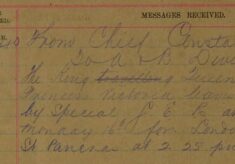 MESSAGES RECEIVED.
From Chief Consta
To A & B Divi
The King travelling Queen
Princess Victoria leave
by Special G. E. R. a
Monday 16th for London
St Pancras at 2.25 pm